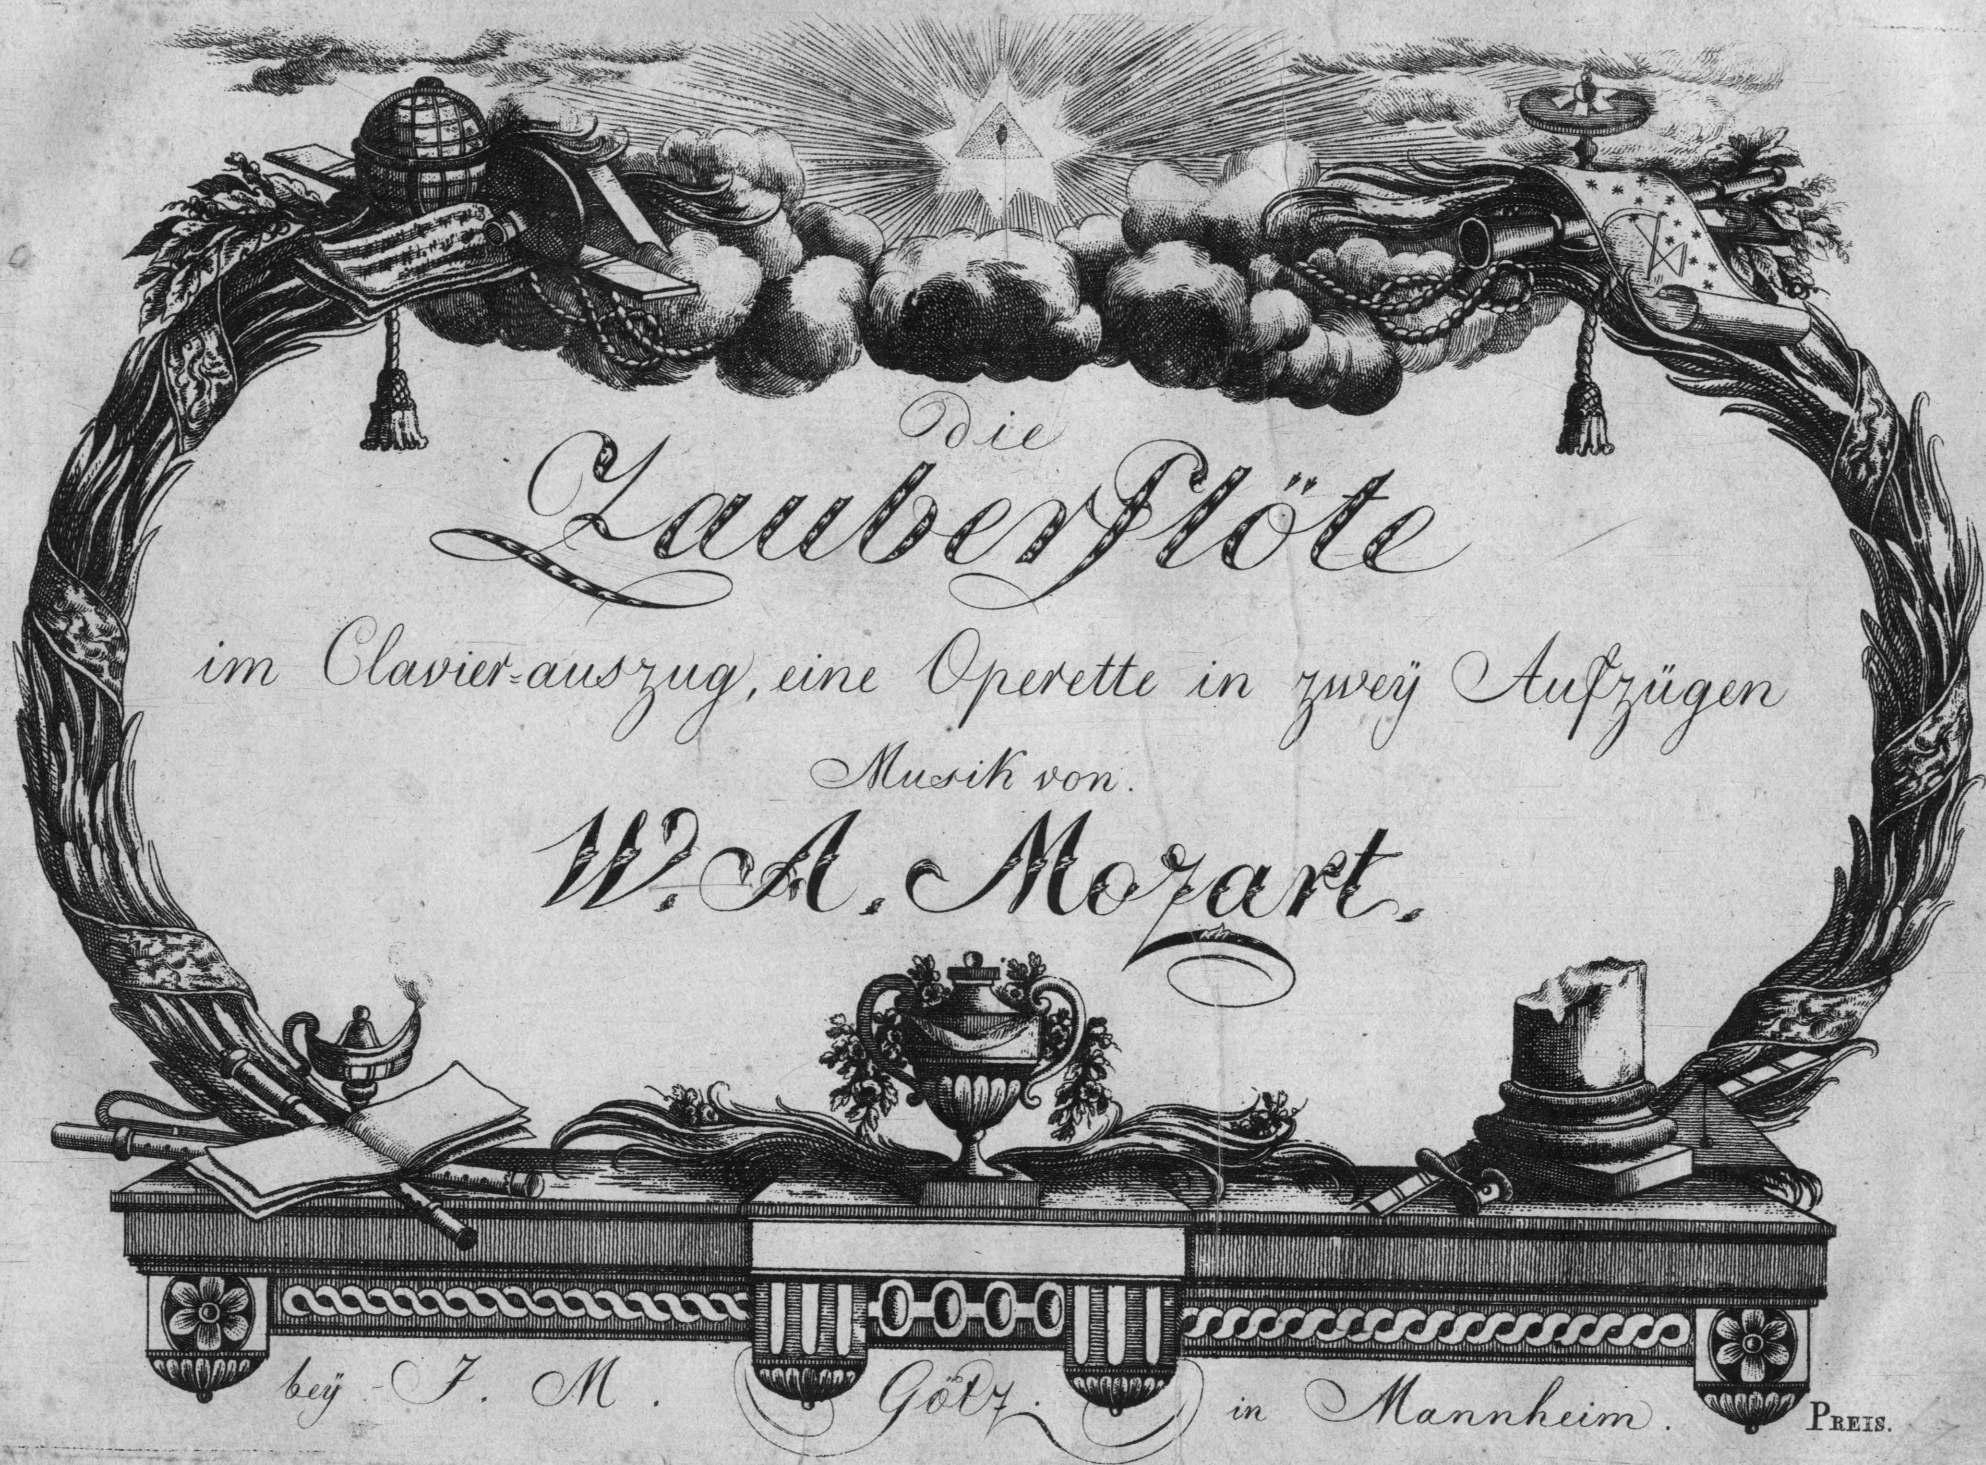 die
Zauberflöte
im Clavier=auszug, eine Operette in zweÿ Aufzügen
Musik von.
W. A. Mozart.
beÿ - J. M. Götz. in Mannheim.
PREIS.